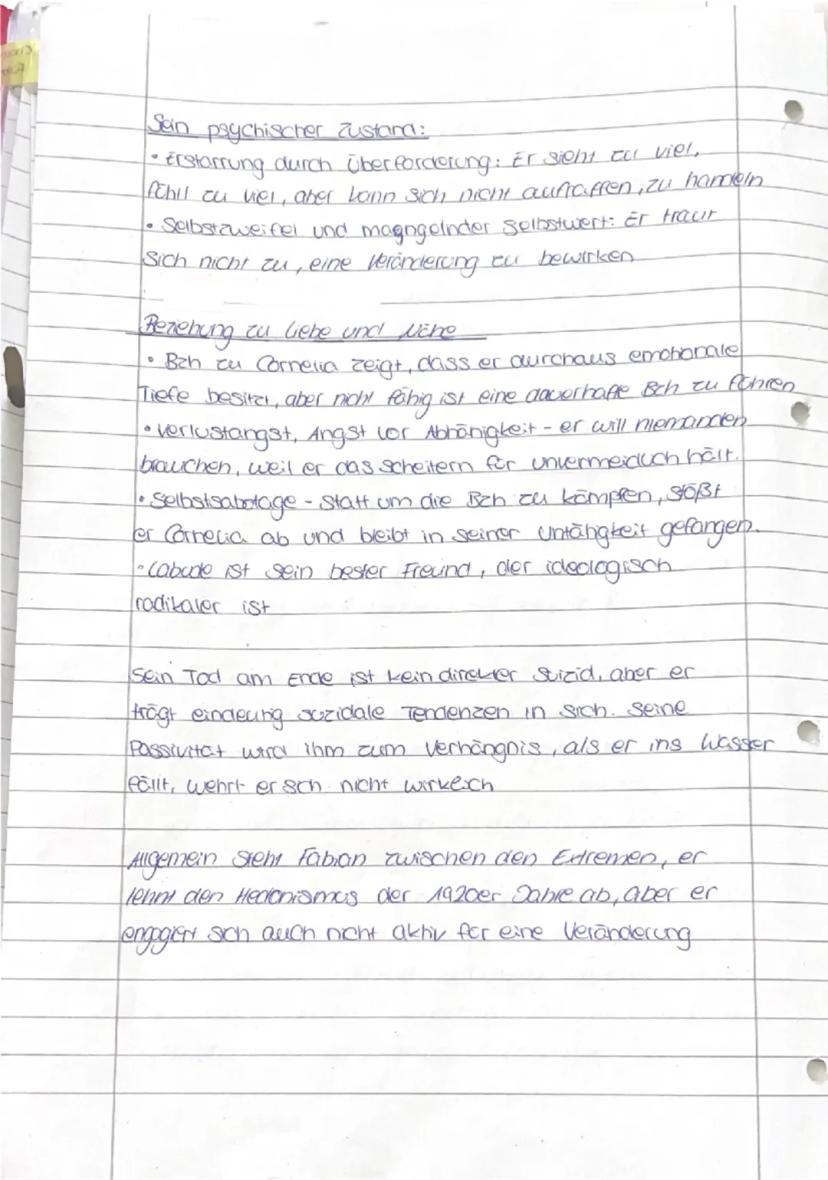 Sein psychischer Zustand:
• Erstarrung durch Überforderung: Er sieht zu viel,
fühlt zu viel, aber kann sich nicht aufraffen, zu handeln
• Selbstzweifel und magngelnder Selbstwert: Er traut
sich nicht zu, eine Veränderung zu bewirken
Beziehung zu Liebe und Nähe
• Bzh zu Cornelia zeigt, dass er durchaus emotionale
Tiefe besitzt, aber nicht fähig ist eine dauerhafte Bzh zu führen
• Verlustangst, Angst vor Abhänigkeit - er will niemanden
brauchen, weil er das Scheitern für unvermeidlich hält.
• Selbstsabotage - Statt um die Bzh zu kämpfen, stößt
er Cornelia ab und bleibt in seiner Unfähigkeit gefangen.
• Labude ist sein bester Freund, der ideologisch
radikaler ist
Sein Tod am Ende ist kein direkter Suizid, aber er
trägt eindeutig suzidale Tendenzen in sich. Seine
Passivität wird ihm zum Verhängnis, als er ins Wasser
fällt, wehrt er sich nicht wirklich
Allgemein steht Fabian zwischen den Extremen, er
lehnt den Hedonismus der 1920er Jahre ab, aber er
engagiert sich auch nicht aktiv für eine Veränderung